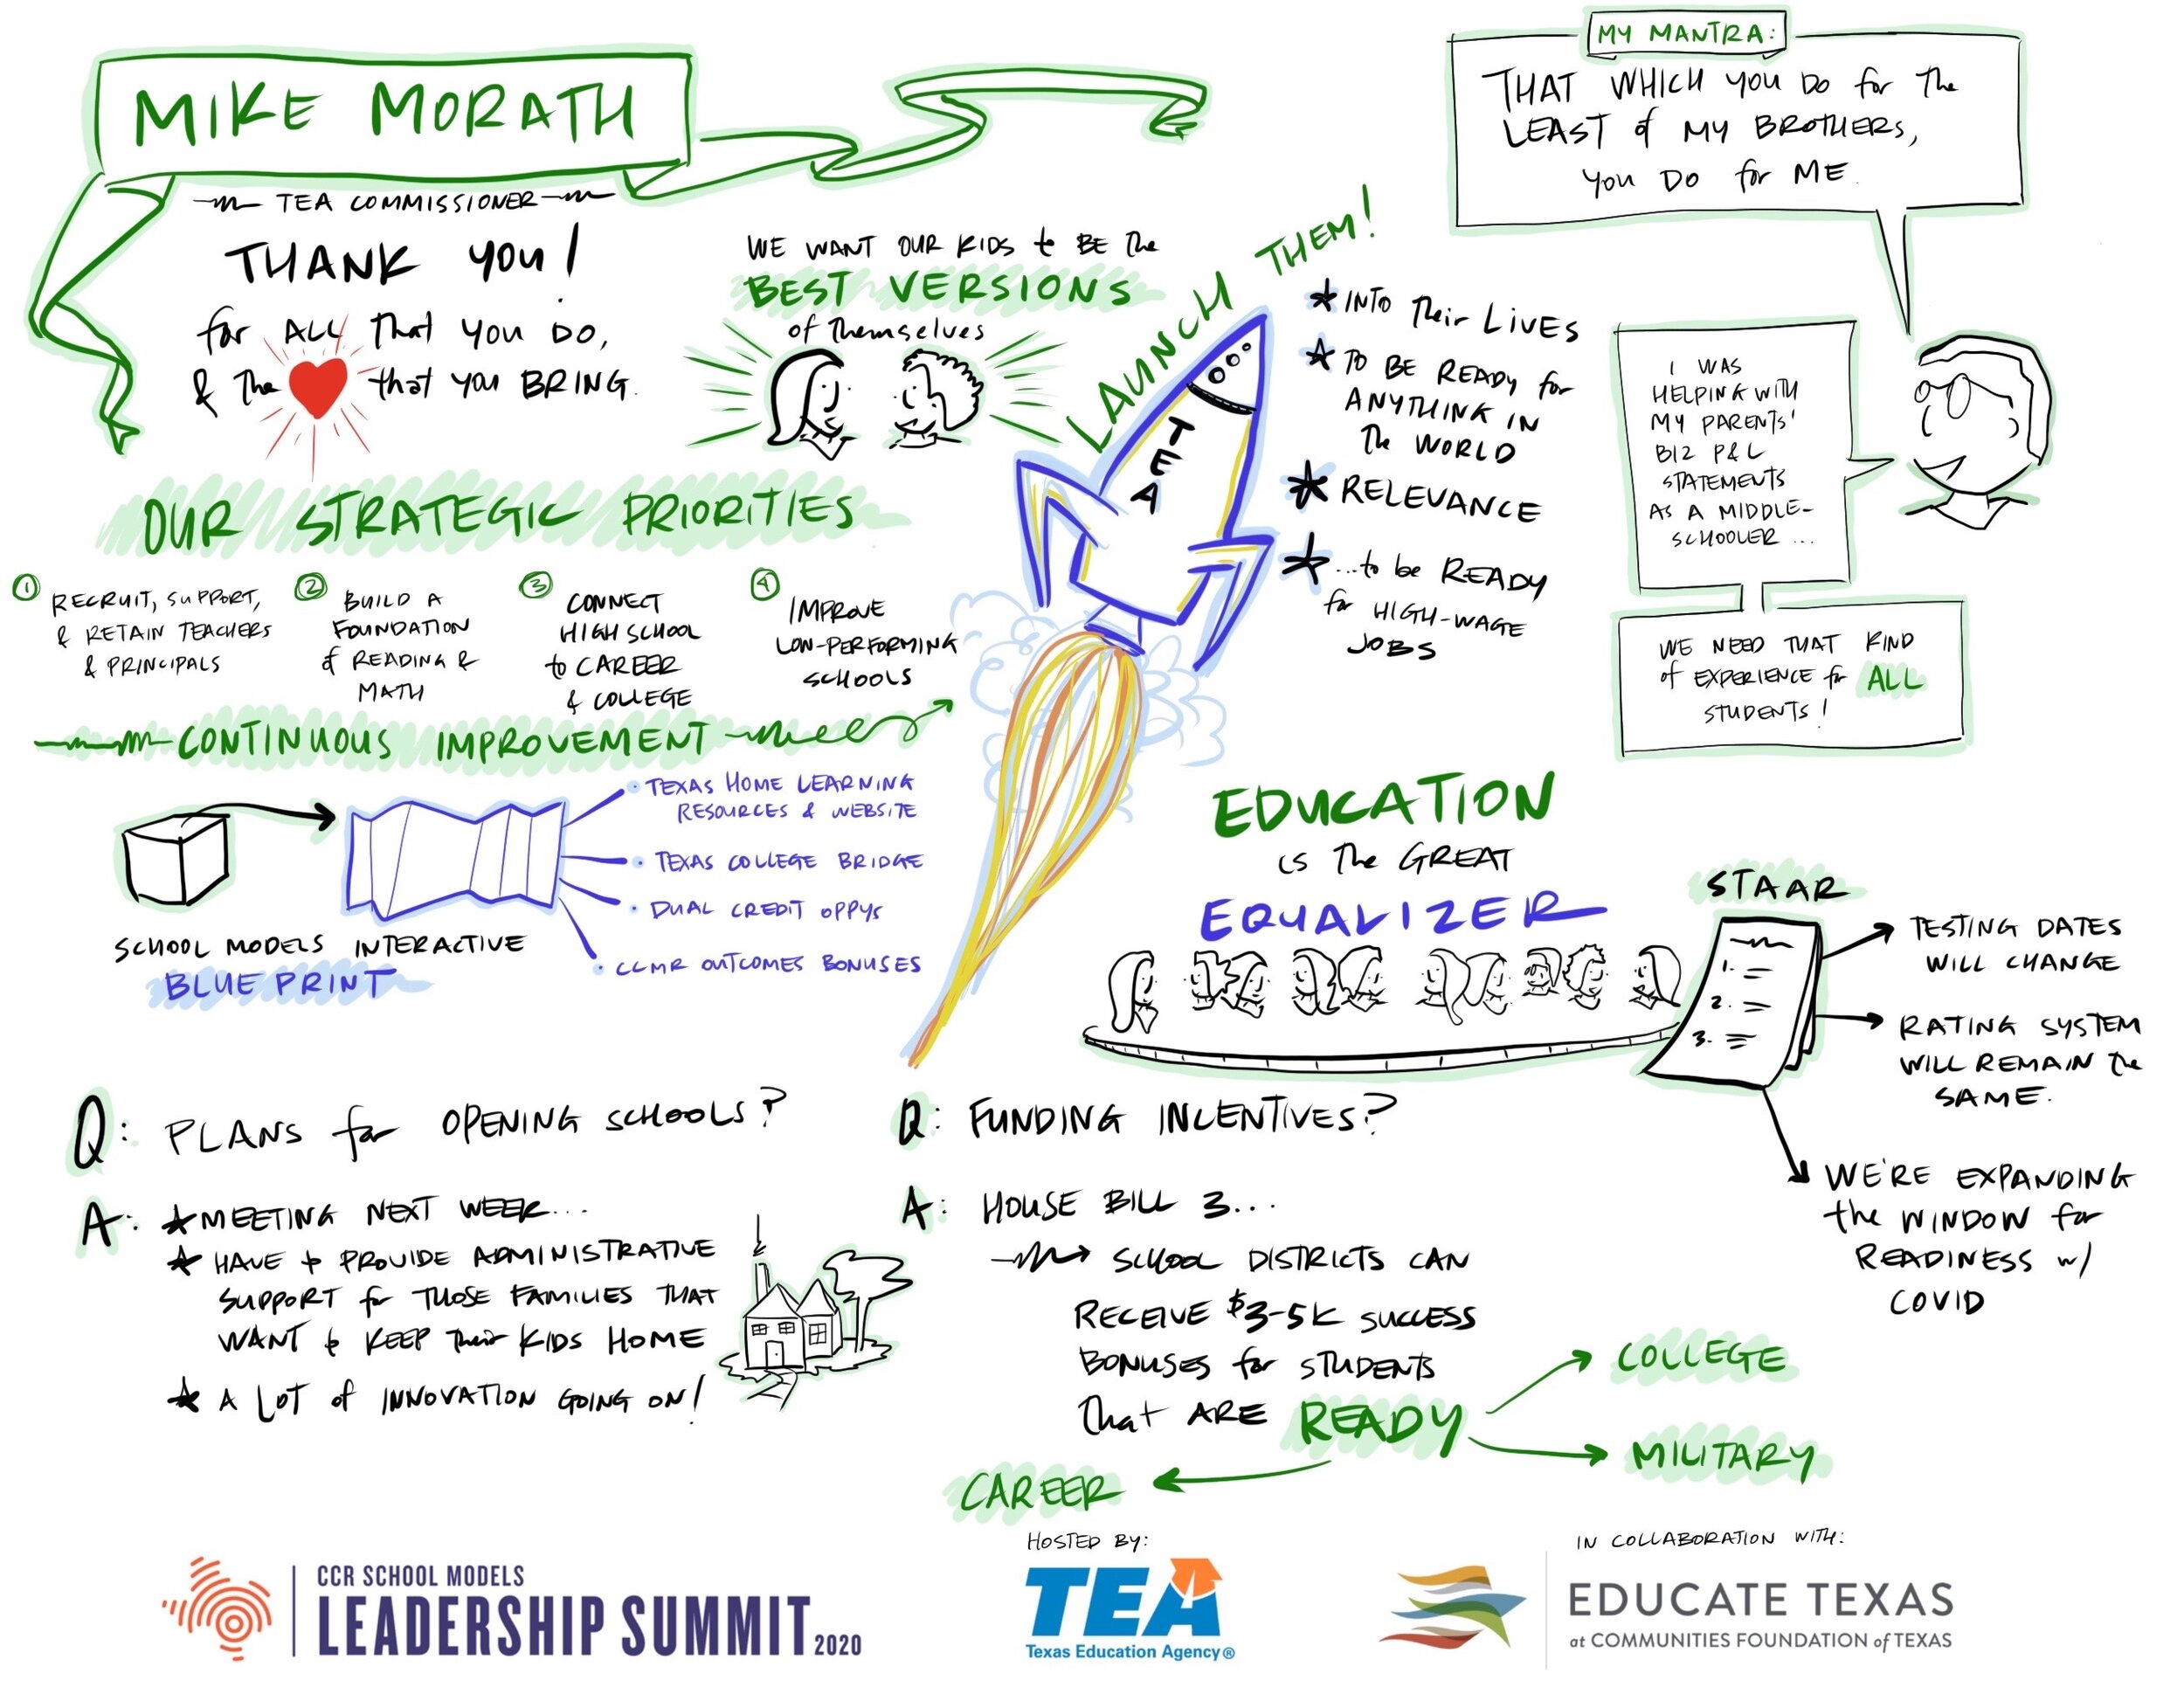 MIKE MORATH
TEA COMMISSIONER
THANK YOU!
for ALL that you DO,
& the that you BRING.
WE WANT OUR KIDS to BE the
BEST VERSIONS
of themselves
LAUNCH THEM!
TEA
INTO their LIVES
TO BE READY for
ANYTHING IN
the WORLD
RELEVANCE
...to be READY
for HIGH-WAGE
JOBS
MY MANTRA:
THAT WHICH YOU DO for the
LEAST of MY BROTHERS,
YOU DO for ME.
I WAS
HELPING WITH
MY PARENTS'
BIZ P&L
STATEMENTS
AS A MIDDLE-
SCHOOLER ...
WE NEED THAT KIND
of EXPERIENCE for ALL
STUDENTS!
OUR STRATEGIC PRIORITIES
1 RECRUIT, SUPPORT,
& RETAIN TEACHERS
& PRINCIPALS
2 BUILD A
FOUNDATION
of READING &
MATH
3 CONNECT
HIGH SCHOOL
to CAREER
& COLLEGE
4 IMPROVE
LOW-PERFORMING
SCHOOLS
CONTINUOUS IMPROVEMENT
SCHOOL MODELS INTERACTIVE
BLUE PRINT
• TEXAS HOME LEARNING
RESOURCES & WEBSITE
• TEXAS COLLEGE BRIDGE
• DUAL CREDIT OPPYS
• CCMR OUTCOMES BONUSES
EDUCATION
is the GREAT
EQUALIZER
STAAR
1.
2.
3.
TESTING DATES
WILL CHANGE
RATING SYSTEM
WILL REMAIN the
SAME.
WE'RE EXPANDING
the WINDOW for
READINESS w/
COVID
Q: PLANS for OPENING SCHOOLS?
A: MEETING NEXT WEEK...
HAVE to PROVIDE ADMINISTRATIVE
SUPPORT for THOSE FAMILIES THAT
WANT to KEEP their KIDS HOME
A LOT of INNOVATION GOING ON!
Q: FUNDING INCENTIVES?
A: HOUSE BILL 3...
SCHOOL DISTRICTS CAN
RECEIVE $3-5K SUCCESS
BONUSES for STUDENTS
that ARE READY
COLLEGE
MILITARY
CAREER
CCR SCHOOL MODELS
LEADERSHIP SUMMIT 2020
HOSTED BY:
TEA
Texas Education Agency®
IN COLLABORATION WITH:
EDUCATE TEXAS
at COMMUNITIES FOUNDATION of TEXAS